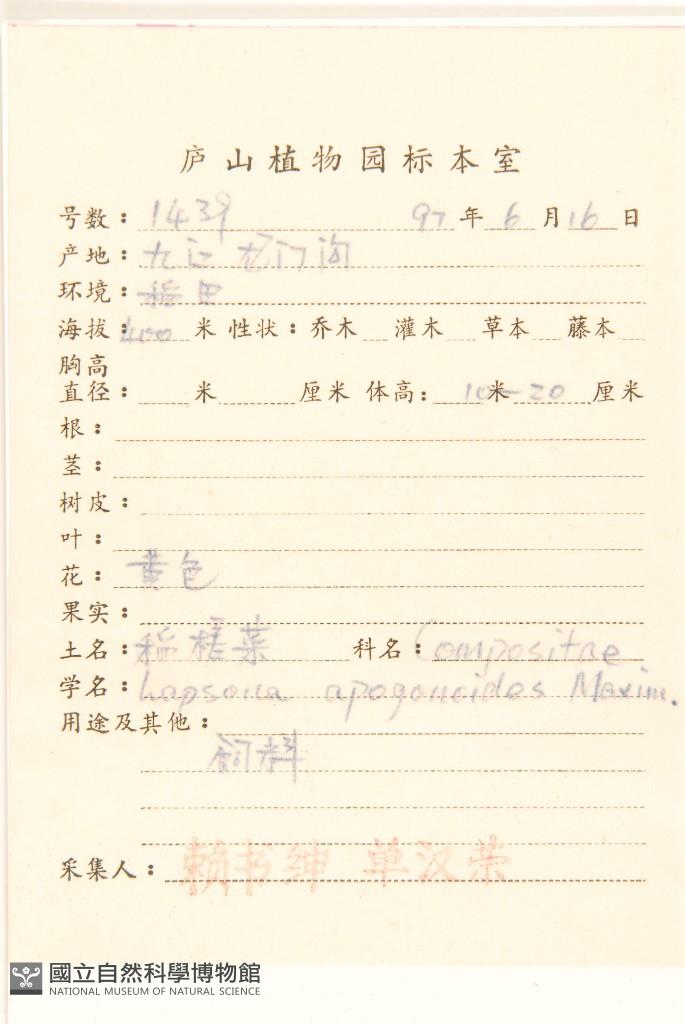 庐山植物园标本室
号数：1439 97年6月16日
产地：九江 龙门沟
环境：稻田
海拔：400米 性状：乔木 灌木 草本 藤本
胸高
直径： 米 厘米 体高： 米 10-20 厘米
根：
茎：
树皮：
叶：
花：黄色
果实：
土名：稻槎菜 科名：Compositae
学名：Lapsana apogonoides Maxim.
用途及其他：
饲料
采集人：赖书绅 单汉荣
國立自然科學博物館
NATIONAL MUSEUM OF NATURAL SCIENCE